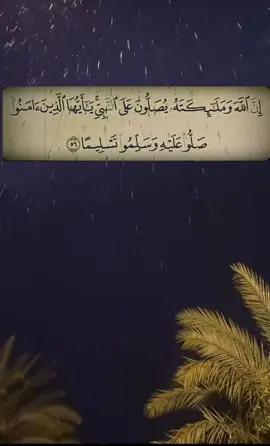 إِنَّ ٱللَّهَ وَمَلَٰٓئِكَتَهُۥ يُصَلُّونَ عَلَى ٱلنَّبِيِّۚ يَٰٓأَيُّهَا ٱلَّذِينَ ءَامَنُوا۟
صَلُّوا۟ عَلَيْهِ وَسَلِّمُوا۟ تَسْلِيمًا ٥٦